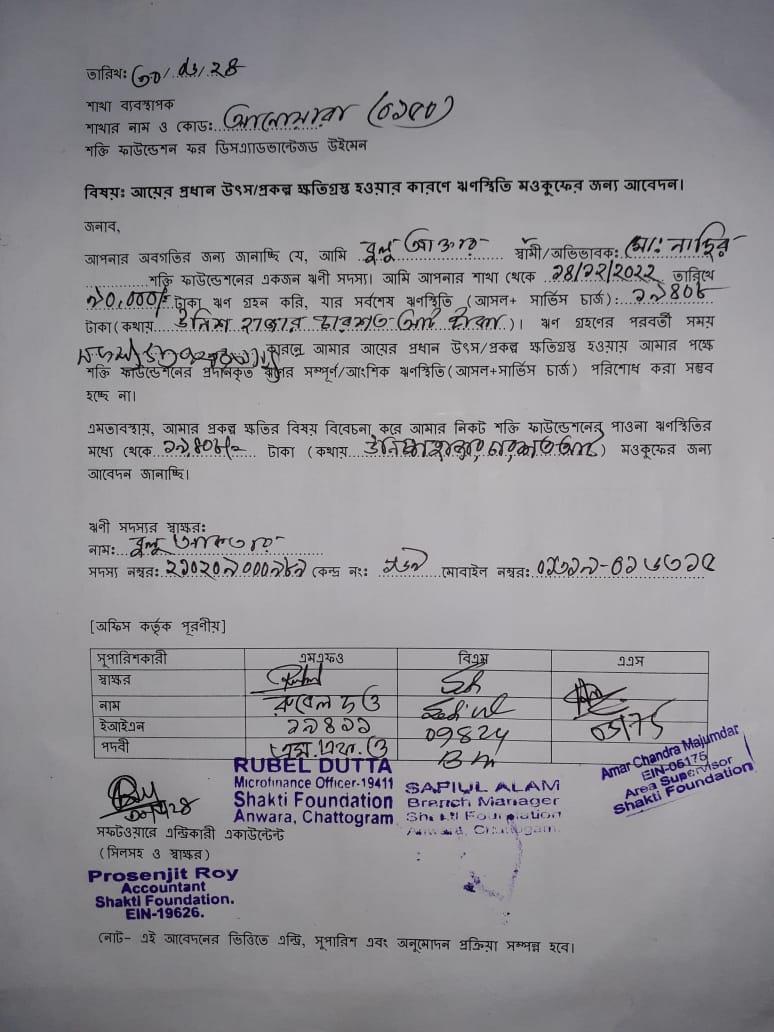 তারিখ: ৩০/ /২৪
শাখা ব্যবস্থাপক
শাখার নাম ও কোড: আনোয়ারা (০১৫০)
শক্তি ফাউন্ডেশন ফর ডিসএ্যাডভান্টেজড উইমেন
বিষয়ঃ আয়ের প্রধান উৎস/প্রকল্প ক্ষতিগ্রস্থ হওয়ার কারণে ঋণস্থিতি মওকুফের জন্য আবেদন।
জনাব,
আপনার অবগতির জন্য জানাচ্ছি যে, আমি বুলু আকতার স্বামী/অভিভাবক: মো: নাছির
শক্তি ফাউন্ডেশনের একজন ঋনী সদস্য। আমি আপনার শাখা থেকে ২৪/১২/২০২২ তারিখে
টাকা ঋণ গ্রহন করি, যার সর্বশেষ ঋণস্থিতি (আসল+ সার্ভিস চার্জ): ১৯৪০৮
টাকা(কথায় উনিশ হাজার চারশত আট টাকা)। ঋণ গ্রহণের পরবর্তী সময়
কারনে আমার আয়ের প্রধান উৎস/প্রকল্প ক্ষতিগ্রস্থ হওয়ায় আমার পক্ষে
শক্তি ফাউন্ডেশনের প্রদানকৃত ঋণের সম্পূর্ণ/আংশিক ঋণস্থিতি(আসল+সার্ভিস চার্জ) পরিশোধ করা সম্ভব
হচ্ছে না।
এমতাবস্থায়, আমার প্রকল্প ক্ষতির বিষয় বিবেচনা করে আমার নিকট শক্তি ফাউন্ডেশনের পাওনা ঋণস্থিতির
মধ্যে থেকে ১৯৪০৮/= টাকা (কথায় উনিশ হাজার চারশত আট) মওকুফের জন্য
আবেদন জানাচ্ছি।
ঋনী সদস্যর স্বাক্ষর:
নাম: বুলু আকতার
সদস্য নম্বর: কেন্দ্র নং: মোবাইল নম্বর:
[অফিস কর্তৃক পূরণীয়]
সুপারিশকারী এমএফও বিএম এএস
স্বাক্ষর
নাম রুবেল দত্ত
ইআইএন ১৯৪১১ 09824 05175
পদবী এম.এফ.ও BM
RUBEL DUTTA
Microfinance Officer-19411
Shakti Foundation
Anwara, Chattogram
SAFIUL ALAM
Branch Manager
Shakti Foundation
Anwara, Chattogram.
Amar Chandra Majumdar
EIN-05175
Area Supervisor
Shakti Foundation
সফটওয়ারে এন্ট্রিকারী একাউন্টেন্ট
(সিলসহ ও স্বাক্ষর)
Prosenjit Roy
Accountant
Shakti Foundation.
EIN-19626.
নোট- এই আবেদনের ভিত্তিতে এন্ট্রি, সুপারিশ এবং অনুমোদন প্রক্রিয়া সম্পন্ন হবে।